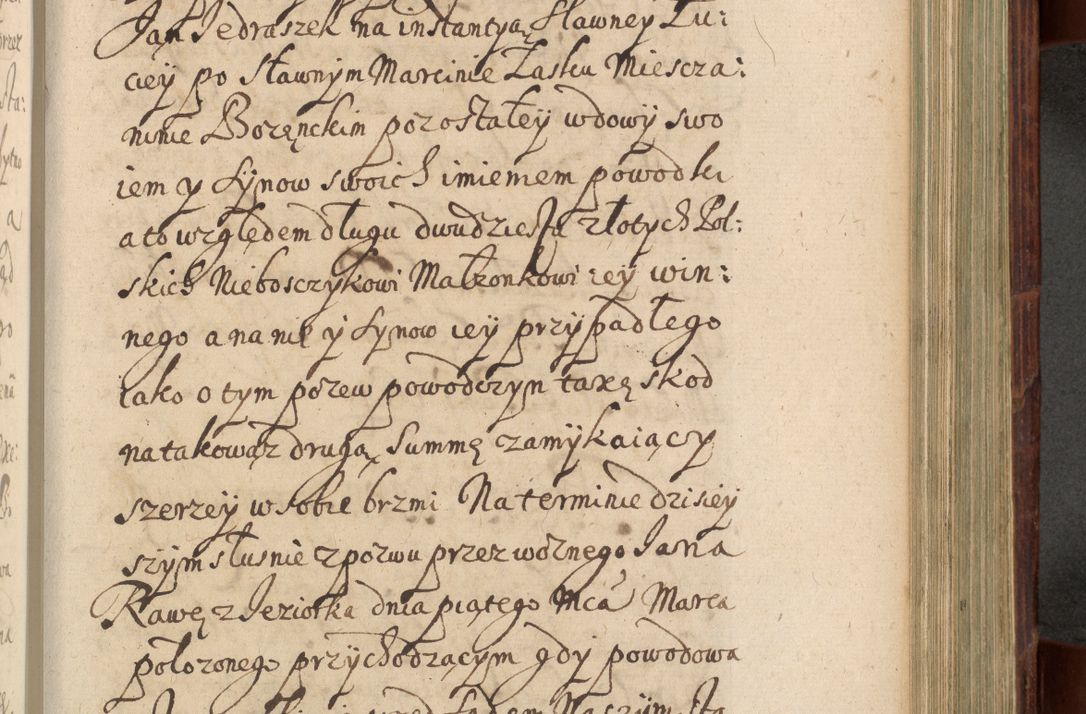 Jan Jedraszek na instantyą Sławney Łu:
ciey po Sławnym Marcinie Łasku Miescza:
ninie Boręnckim pozostałey wdowy swo
iem y Synow swoich imieniem powodki
a to względem długu dwudziestu złotych Pol:
skich Nieboszczykowi Małzonkowi iey win:
nego a na nię y Synow iey przypadłego
iako o tym pozew powodczyn taxę skod
na takowąz drugą Summę zamykaiący
szerzey w sobie brzmi Na terminie dzisiey
szym słusnie z pozwu przez woznego Jana
Kawę z Jeziorka dnia piątego Mca Marca
połozonego przychodzącym gdy powodowa